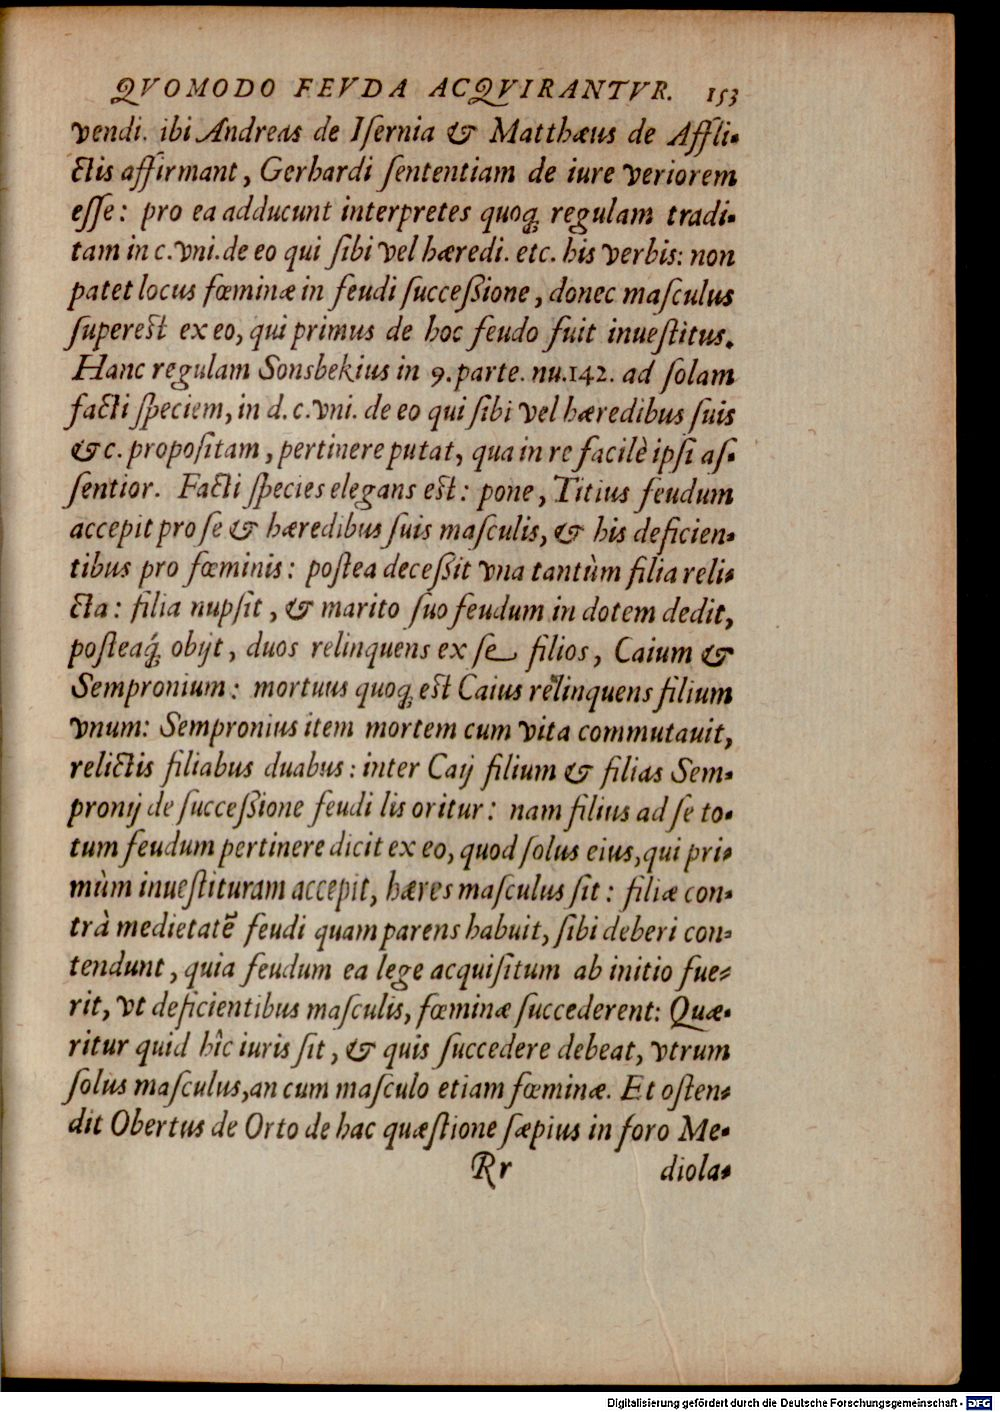 QVOMODO FEVDA ACQVIRANTVR. 153
vendi. ibi Andreas de Iſernia & Matthæus de Affli-
ctis affirmant, Gerhardi ſententiam de iure veriorem
eſſe: pro ea adducunt interpretes quoq́; regulam tradi-
tam in c. vni. de eo qui ſibi vel hæredi. etc. his verbis: non
patet locus fœminæ in feudi ſucceßione, donec maſculus
ſupereſt ex eo, qui primus de hoc feudo fuit inueſtitus.
Hanc regulam Sonsbekius in 9. parte. nu. 142. ad ſolam
facti ſpeciem, in d. c. vni. de eo qui ſibi vel hæredibus ſuis
&c. propoſitam, pertinere putat, qua in re facilè ipſi aſ-
ſentior. Facti ſpecies elegans eſt: pone, Titius feudum
accepit pro ſe & hæredibus ſuis maſculis, & his deficien-
tibus pro fœminis: poſtea deceßit vna tantùm filia reli-
cta: filia nupſit, & marito ſuo feudum in dotem dedit,
poſteaq́; obijt, duos relinquens ex ſe filios, Caium &
Sempronium: mortuus quoq; eſt Caius relinquens filium
vnum: Sempronius item mortem cum vita commutauit,
relictis filiabus duabus: inter Caij filium & filias Sem-
pronij de ſucceßione feudi lis oritur: nam filius ad ſe to-
tum feudum pertinere dicit ex eo, quod ſolus eius, qui pri-
mùm inueſtituram accepit, hæres maſculus ſit: filiæ con-
trà medietatẽ feudi quam parens habuit, ſibi deberi con-
tendunt, quia feudum ea lege acquiſitum ab initio fue-
rit, vt deficientibus maſculis, fœminæ ſuccederent: Quæ-
ritur quid hîc iuris ſit, & quis ſuccedere debeat, vtrum
ſolus maſculus, an cum maſculo etiam fœminæ. Et oſten-
dit Obertus de Orto de hac quæſtione ſæpius in foro Me-
Rr diola-
Digitalisierung gefördert durch die Deutsche Forschungsgemeinschaft - DFG